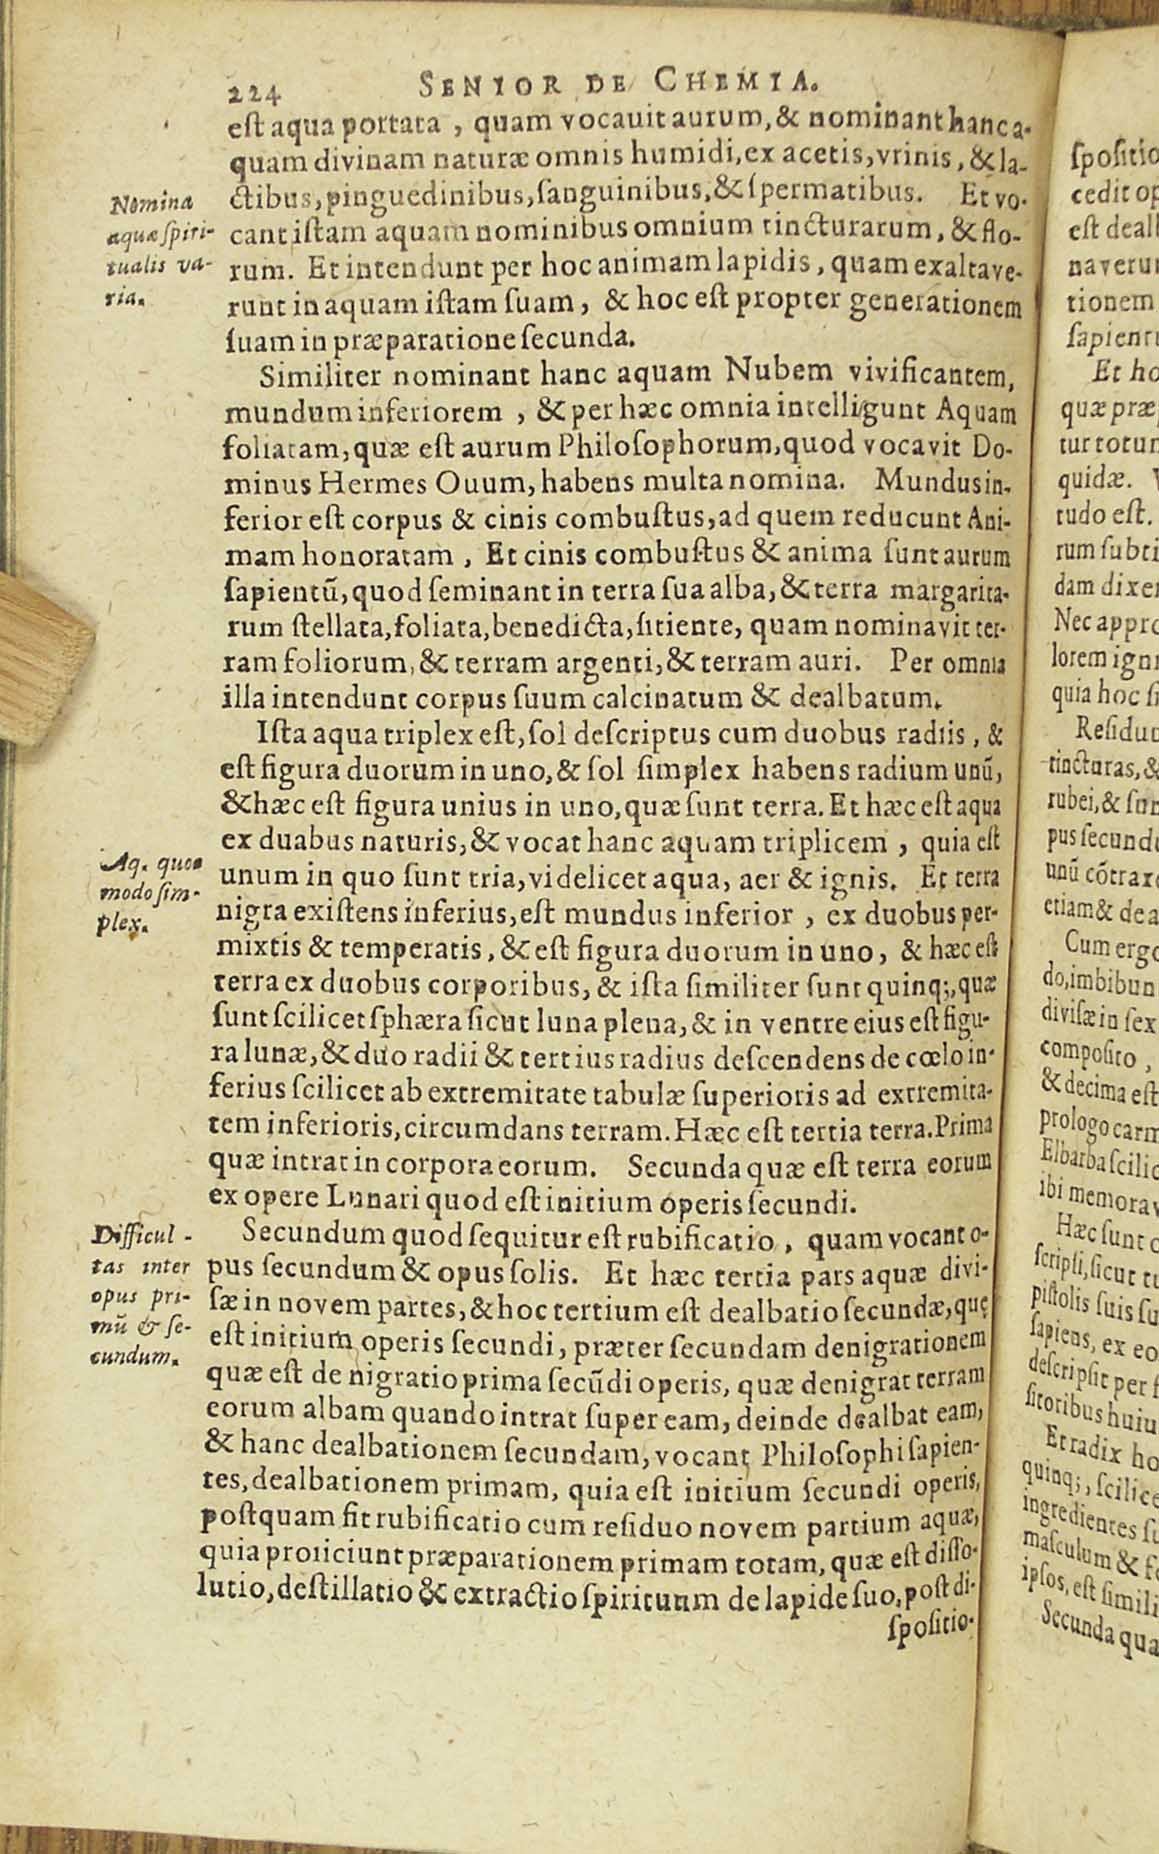 224 SENIOR DE CHEMIA.
est aqua portata, quam vocavit aurum, & nominant hanc a-
quam divinam naturæ omnis humidi, ex acetis, vrinis, & la-
ctibus, pinguedinibus, sanguinibus, & spermatibus. Et vo-
cant istam aquam nominibus omnium tincturarum, & flo-
rum. Et intendunt per hoc animam lapidis, quam exaltave-
runt in aquam istam suam, & hoc est propter generationem
suam in præparatione secunda.
Nomina
aquæ spiri-
tualis va-
ria.
Similiter nominant hanc aquam Nubem vivificantem,
mundum inferiorem, & per hæc omnia intelligunt Aquam
foliatam, quæ est aurum Philosophorum, quod vocavit Do-
minus Hermes Ovum, habens multa nomina. Mundus in-
ferior est corpus & cinis combustus, ad quem reducunt Ani-
mam honoratam, Et cinis combustus & anima sunt aurum
sapientū, quod seminant in terra sua alba, & terra margarita-
rum stellata, foliata, benedicta, sitiente, quam nominavit ter-
ram foliorum, & terram argenti, & terram auri. Per omnia
illa intendunt corpus suum calcinatum & dealbatum.
Ista aqua triplex est, sol descriptus cum duobus radiis, &
est figura duorum in uno, & sol simplex habens radium unū,
& hæc est figura unius in uno, quæ sunt terra. Et hæc est aqua
ex duabus naturis, & vocat hanc aquam triplicem, quia est
unum in quo sunt tria, videlicet aqua, aer & ignis. Et terra
nigra existens inferius, est mundus inferior, ex duobus per-
mixtis & temperatis, & est figura duorum in uno, & hæc est
terra ex duobus corporibus, & ista similiter sunt quinq;, quæ
sunt scilicet sphæra sicut luna plena, & in ventre eius est figu-
ra lunæ, & duo radii & tertius radius descendens de cœlo in-
ferius scilicet ab extremitate tabulæ superioris ad extremita-
tem inferioris, circumdans terram. Hæc est tertia terra. Prima
quæ intrat in corpora eorum. Secunda quæ est terra eorum
ex opere Lunari quod est initium operis secundi.
Aq. quo-
modo sim-
plex.
Secundum quod sequitur est rubificatio, quam vocant o-
pus secundum & opus solis. Et hæc tertia pars aquæ divi-
sæ in novem partes, & hoc tertium est dealbatio secundæ, quę
est initium operis secundi, præter secundam denigrationem
quæ est de nigratio prima secūdi operis, quæ denigrat terram
eorum albam quando intrat super eam, deinde dealbat eam,
& hanc dealbationem secundam, vocant Philosophi sapien-
tes, dealbationem primam, quia est initium secundi operis,
postquam fit rubificatio cum residuo novem partium aquæ,
quia proiiciunt præparationem primam totam, quæ est disso-
lutio, destillatio & extractio spirituum de lapide suo, post di-
spositio-
Difficul-
tas inter
opus pri-
mū & se-
cundum.
spositio
cedit op
est dealb
naverun
tionem
sapienti
Et ho
quæ præp
tur totum
quidæ.
tudo est.
rum subti
dam dixer
Nec appro
lorem igni
quia hoc si
Residuu
tincturas, &
rubei, & sun
pus secundu
unū cōtraxe
etiam & de a
Cum ergo
do, imbibun
divisæ in sex
composito,
& decima est
prologo carm
Elbarba scilic
ibi memorav
Hæc sunt
scripsi, sicut
pistolis suis su
sapiens, ex eo
descripsit per f
sitoribus huiu
Et radix ho
quinq;, scilice
ingredientes su
masculum & fe
ipsos, est simili
Secunda qua